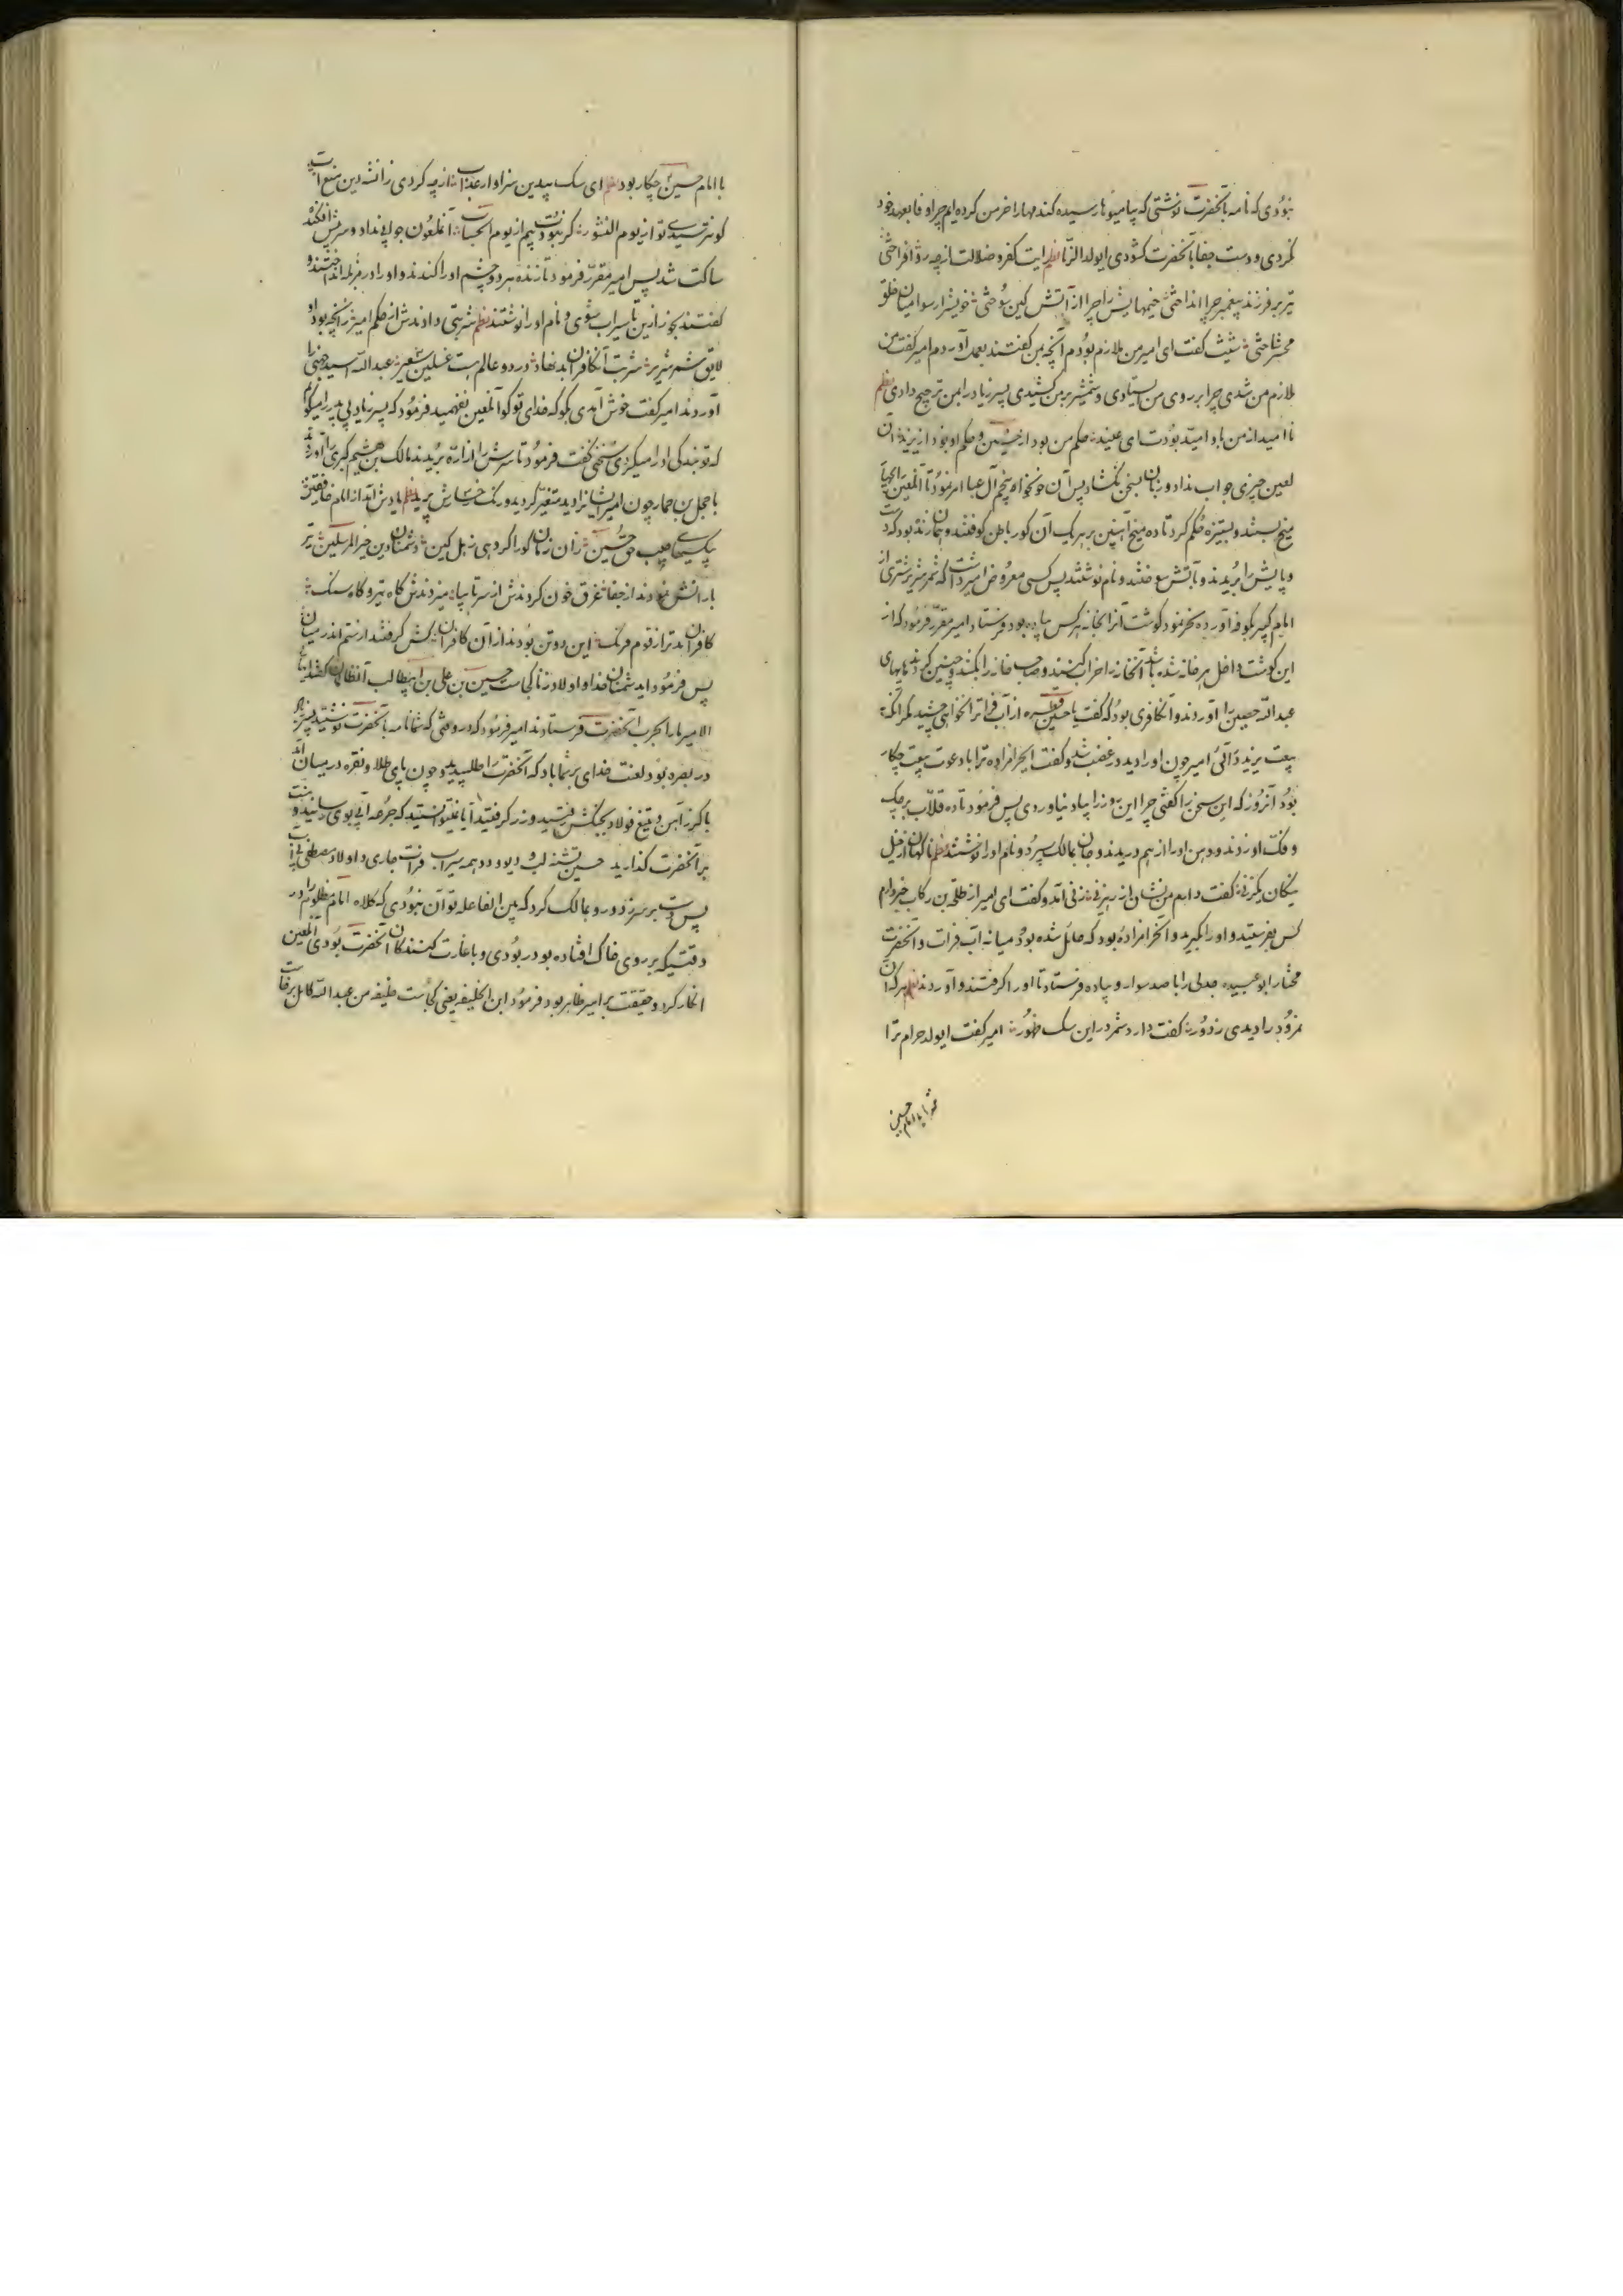 نبودی که نامه بآنحضرت نوشتی که بیا میوها رسیده کندمها را خرمن کرده‌ایم چرا وفا بعهد خود
نکردی و دست جفا بآنحضرت کشودی ایولد الزنا نظم رایت کفر و ضلالت از چه رو افراختی
تیر بر فرزند پیغمبر چرا انداختی خیمهایش را چرا از آتش کین سوختی خویش را رسوا میان خلق
محشر ساختی شیث کفت ای امیر من ملازم بودم آنچه بمن کفتند بعمل آوردم امیر کفت من
ملازم من شدی چرا بر روی من ایستادی و شمشیر بر من کشیدی پسر زیاد را بمن ترجیح دادی نظم
نا امید از من باو امید بودت ای عنید حکم من بود از حسین و حکم او بود از یزید آن
لعین چیزی جواب نداد و زبان بسخن نکشاد پس آن خونخواه پنجم آل عبا امر فرمود تا آنلعین را بچهار
میخ بستند و بستیزه حکم کرد تا ده میخ آهنین بر هر یک آن کور باطن کوفتند و همان زنده بود که دست
و پایش را بریدند و بآتش سوختند و نام نوشتند پس کسی معروض امیر داشت که شمر شریر شتری از
امام کبیر بکوفه آورده نحر نمود کوشت آنرا بخانه هر کس داده بود و فرستاد امیر مقرر فرمود که از
این کوشت داخل هر خانه شده باشد آنخانه را خراب کنند و صاحب خانه را بکشند و چنین کردند بابهای
عبدالله حصین را آوردند و آن کافری بود که کفت یا حسین قطره از آب فرات را نخواهی چشید مکر آنکه
بیعت یزید در آئی امیر چون او را دید در غضب شد و کفت ایحرامزاده ترا با دعوت بیعت چکار
بود آنروز که این سخن را کفتی چرا این روز را بیاد نیاوردی پس فرمود تا ده قلاب بر چک
و فک او زدند و دهن او را از هم دریدند و جان بمالک سپرد و نام او را نوشتند نظم ناکهان از خیل
نیکان یکزنی کفت دارم من نشان از رهزنی زنی آمد و کفت ای امیر از طلحة بن رکاب خبر دارم
کس بفرستید و او را بکیرید و آنحرامزاده بود که حائل شده بود میانه آب فرات و آنحضرت
مختار ابو عبیده جدلی را با صد سوار و پیاده فرستاد تا او را کرفتند و آوردند نظم هر که آن
نمرود را دیدی ز دور کفت دارد شمر در این سک ظهور امیر کفت ایولد حرام ترا
با امام حسین
با امام حسین چکار بود نظم ای سک بیدین سزاوار عذاب از چه کردی زان شه دین منع آب
کو نترسیدی تو از یوم النشور کر نبودت بیم از یوم الحساب آنملعون جوابی نداد و سر پیش افکنده
ساکت شد پس امیر مقرر فرمود تا زنده هر دو چشم او را کندند و او را در مزبله انداختند و
کفتند بخور ازین تا سیراب شوی و نام او را نوشتند نظم شربتی دادندش از حکم امیر زانچه بود او
لایق شمر شریر شربت آن کافران بد نهاد در دو عالم هست غسلین سعیر عبدالله اسید جهنی را
آوردند امیر کفت خوش آمدی بکو که خدای تو کو آنلعین نفهمید فرمود که پسر زیاد بی پدر را میکویم
که تو بندکی او را میکردی سخنی نکفت فرمود تا سرش را از اره بریدند مالک بن هشیم کبری را آوردند
با جمل بن حمار چون امیر ایشانرا دید متغیر کردید و رنک رخسارش پرید نظم یادش آمد از امام خافقین
بیکسیهای حبیب حق حسین زان زمان کو را کروهی ز اهل کین دشمنان دین خیر المرسلین تیر
بارانش نمودند از جفا غرق خون کردندش از سر تا بپا میزدندش کاه تیر و کاه سنک
کافران بدتر از قوم فرنک این دو تن بودند از آن کافران کیش کرفتند از ستم اندر میان
پس فرمود ای دشمنان خدا و اولاد زنا کجاست حسین بن علی بن ابیطالب آنظالمان کفتند ایها
الامیر ما را بحرب آنحضرت فرستادند امیر فرمود که در وقتی که شما نامه بآنحضرت نوشتید پسر زیاد
در بصره بود لعنت خدای بر شما باد که آنحضرت را طلبیدید و چون پای طلا و نقره در میان آمد
با کرز آهن و تیغ فولاد بجنکش رفتید و زر کرفتید آیا نمیتوانستید که جرعه آبی بوی رسانید و منت
بر آنحضرت کذارید حسین تشنه لب و دیو و دد همه سیراب فرات جاری و اولاد مصطفی بی آب
پس دست بر سر زد و رو بمالک کرد که یابن الفاعله تو آن نبودی که کلاه امام مظلوم را در
وقتیکه بر روی خاک افتاده بود ربودی و با غارت کنندکان آنحضرت بودی آنلعین
انکار کرد و حقیقت بر امیر ظاهر بود فرمود این الخلیفه یعنی کجاست خلیفه من عبدالله کامل برخاست